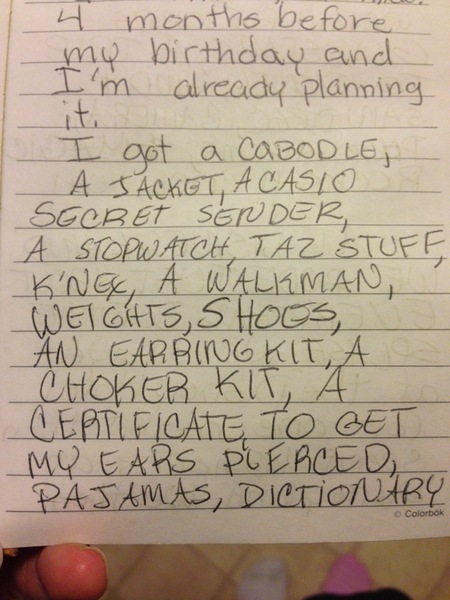 4 months before
my birthday and
I'm already planning
it.
I got a CABODLE,
A JACKET, A CASIO
SECRET SENDER,
A STOPWATCH, TAZ STUFF,
K'NEX, A WALKMAN,
WEIGHTS, SHOES,
AN EARRING KIT, A
CHOKER KIT, A
CERTIFICATE TO GET
MY EARS PIERCED,
PAJAMAS, DICTIONARY
© Colorbök